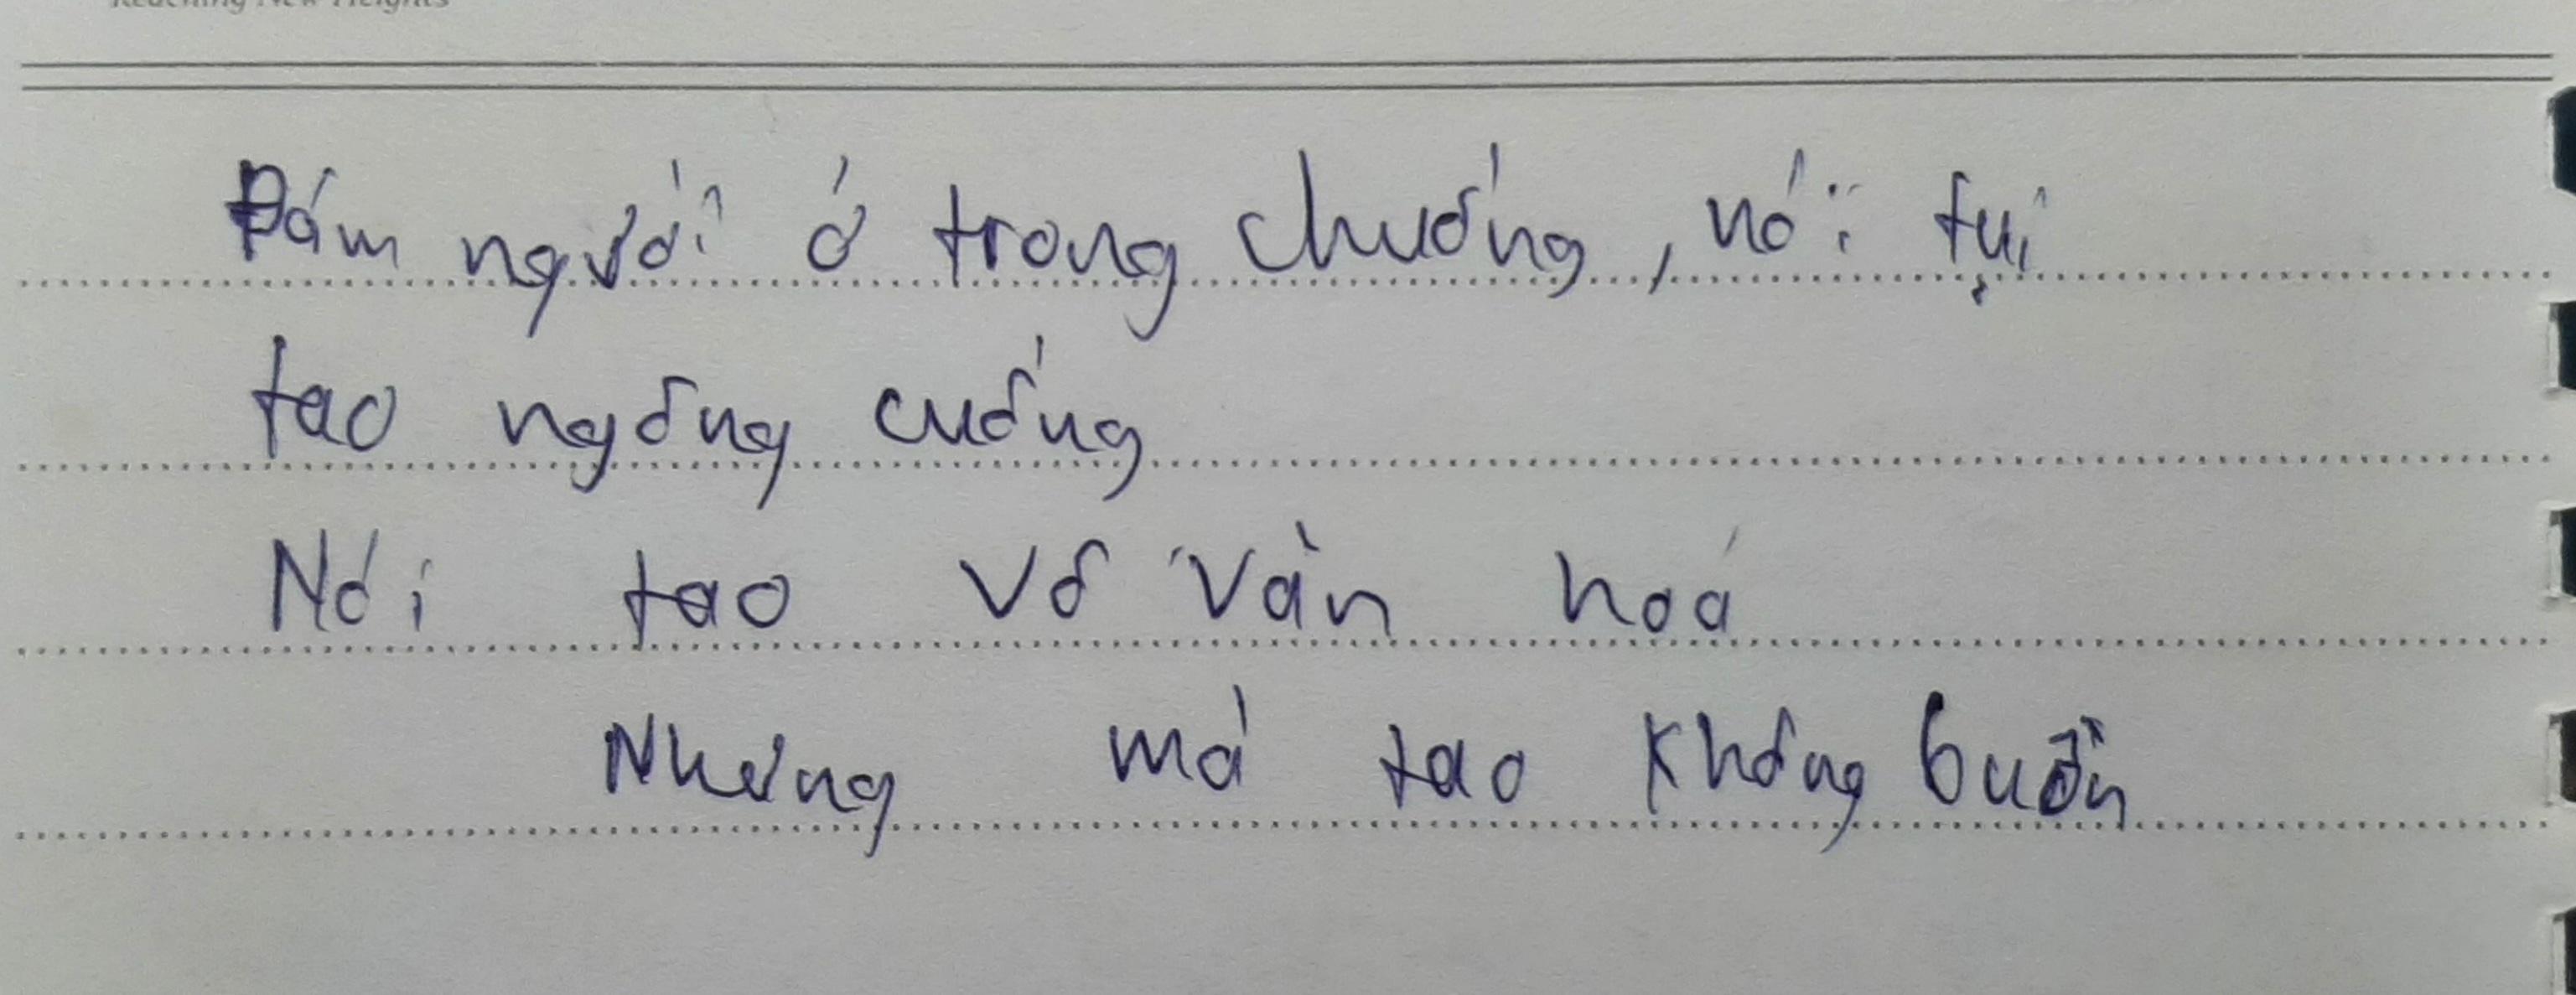 Reaching New Heights
Đám người ở trong chuồng, nói tụi
tao ngông cuồng
Nói tao vô văn hoá
Nhưng mà tao không buồn